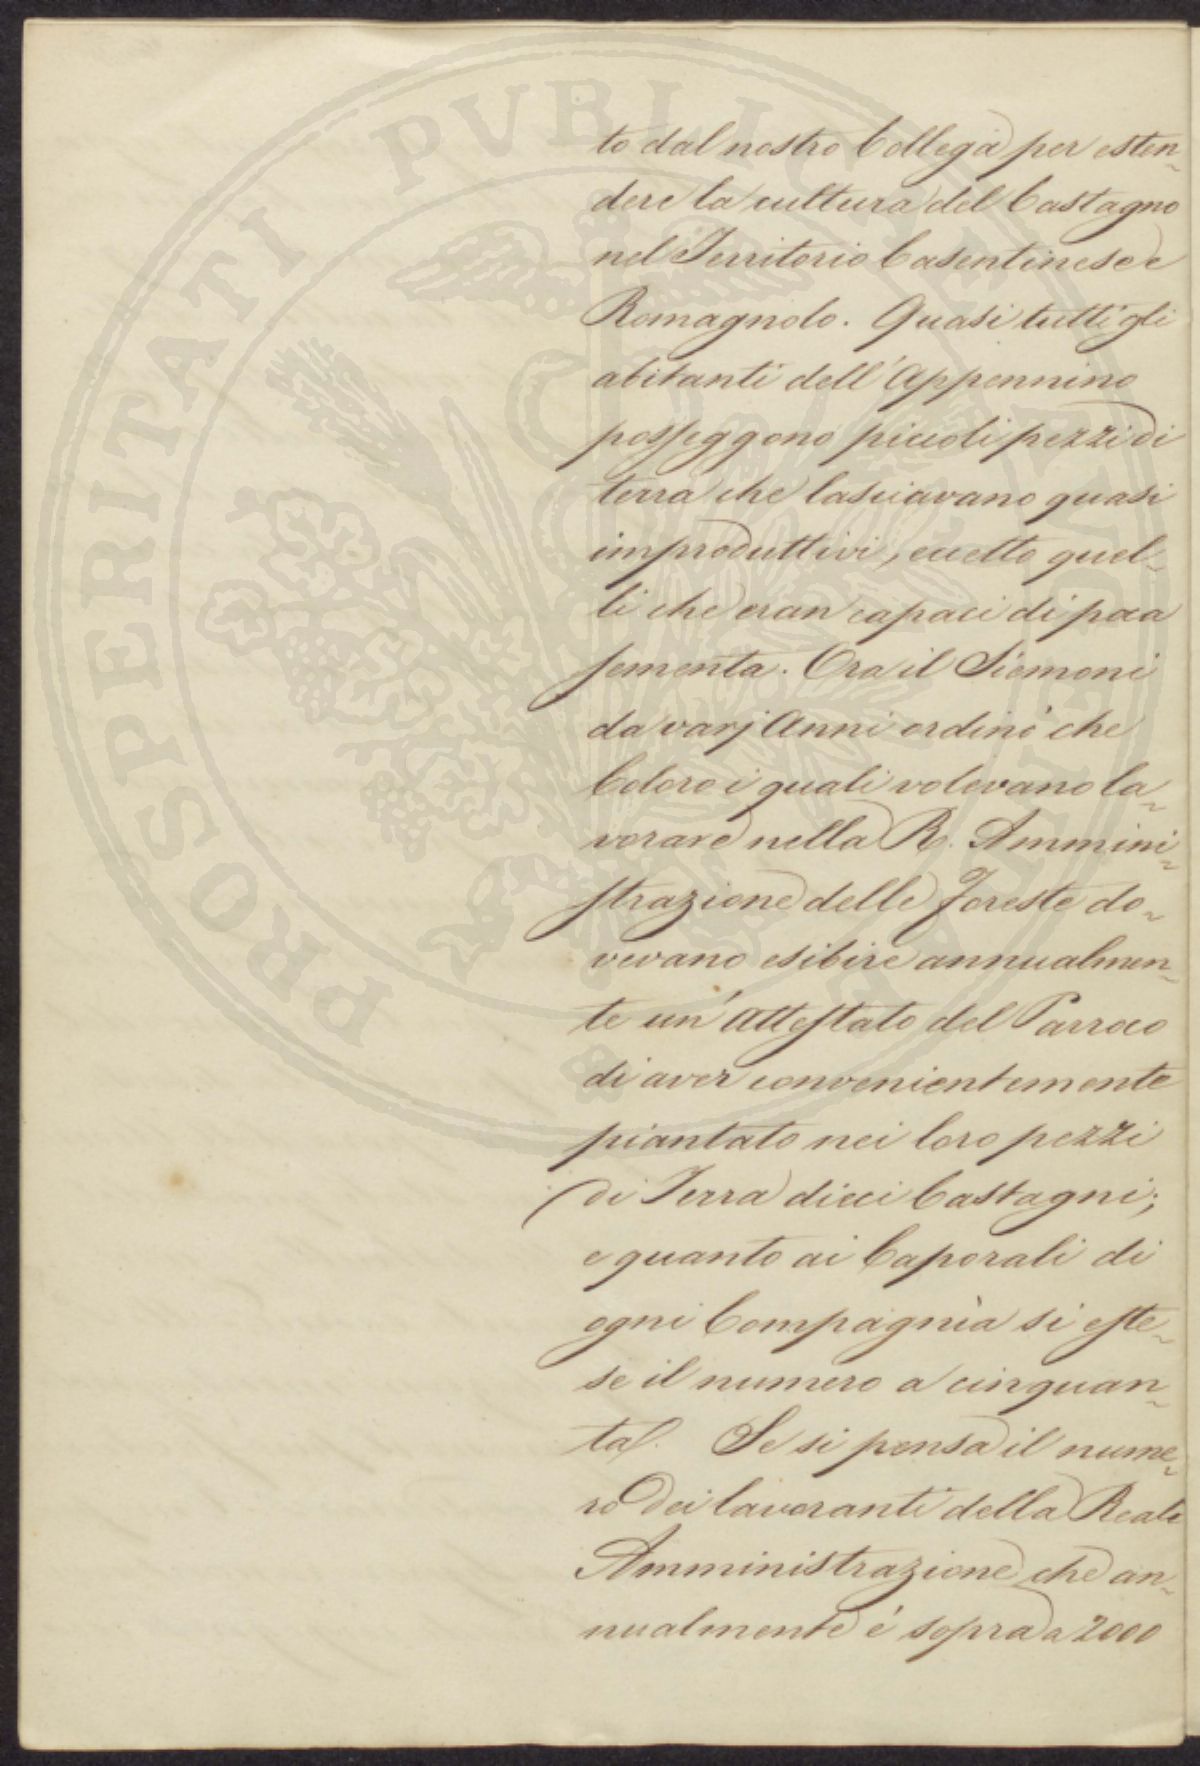 to dal nostro Collega per esten-
dere la cultura del Castagno
nel Territorio Casentinese e
Romagnolo. Quasi tutti gli
abitanti dell'Appennino
posseggono piccoli pezzi di
terra che lasciavano quasi
improduttivi, eccetto quel-
li che eran capaci di poca
sementa. Ora il Siemoni
da varj Anni ordinò che
Coloro i quali volevano la-
vorare nella R. Ammini-
strazione delle Foreste do-
vevano esibire annualmen-
te un'attestato del Parroco
di aver convenientemente
piantato nei loro pezzi
di Terra dieci Castagni;
e quanto ai Caporali di
ogni Compagnìa si este-
se il numero a cinquan-
ta. Se si pensa il nume-
ro dei lavoranti della Reale
Amministrazione che an-
nualmente è sopra a 2000
PROSPERITATI PVBLICAE